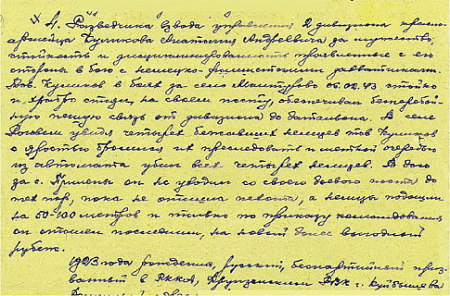 4. Разведчика взвода управления 2 дивизиона красно-
армейца Кушкова Анатолия Андреевича за мужество,
стойкость и дисциплинированность проявленные с его
стороны в бою с немецко-фашистскими захватчиками.
Тов. Кушков в боях за село Мантурово 05.02.43 стойко
и храбро стоял на своем посту, обеспечивая бесперебой-
ную пешую связь от дивизиона до батальона. В селе
увидя четырех бежавших немцев тов Кушков
с яростью бросился их преследовать и меткой очередью
из автомата убил всех четырех немцев. В бою
за с. он не уходил со своего боевого поста до
тех пор, пока не отошла пехота, а немцы подошли
на 50-100 метров и только по приказу командования
он отошел последним, на новый более выгодный
рубеж.
1923 года рождения, русский, беспартийный приз-
ванный в РККА, Фрунзенским РВК г. Куйбышева